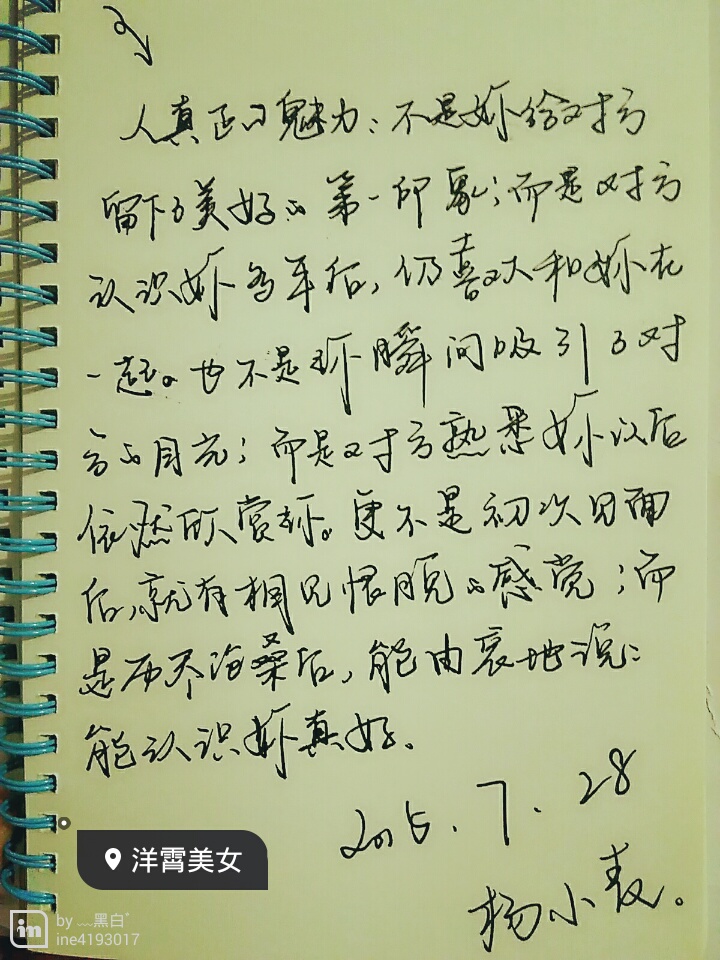 人真正的魅力：不是妳给对方
留下了美好的第一印象；而是对方
认识妳多年后，仍喜欢和妳在
一起。也不是妳瞬间吸引了对
方的目光；而是对方熟悉妳以后
依然欣赏妳。更不是初次见面
后，就有相见恨晚的感觉；而
是历尽沧桑后，能由衷地说：
能认识妳真好。
2015.7.28
杨小麦。
洋霄美女
by ﹏黑白゛
ine4193017
in